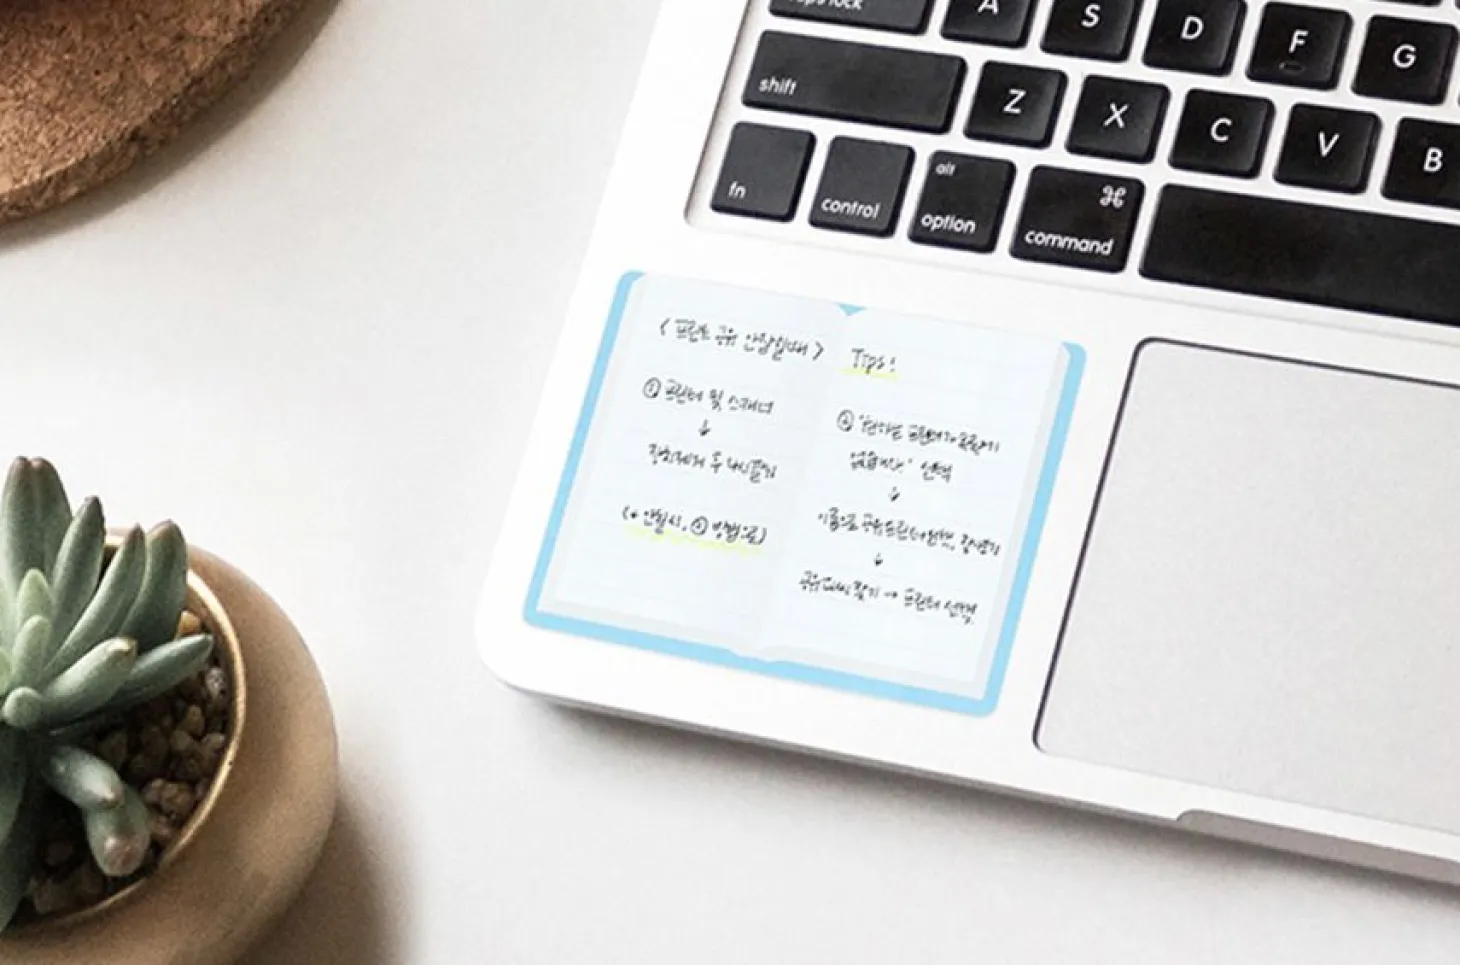 caps lock
A
S
D
F
G
shift
Z
X
C
V
B
fn
control
alt
option
⌘
command
< 프린트 공유 안됨일때 >
① 프린터 및 스캐너
↓
장치제거 후 다시찾기
(* 안될시, ② 방법으로)
Tips!
② "원하는 프린터가 목록에
없습니다." 선택
↓
이름으로 공유프린터선택, 찾아보기
↓
공유 찾기 → 프린터 선택